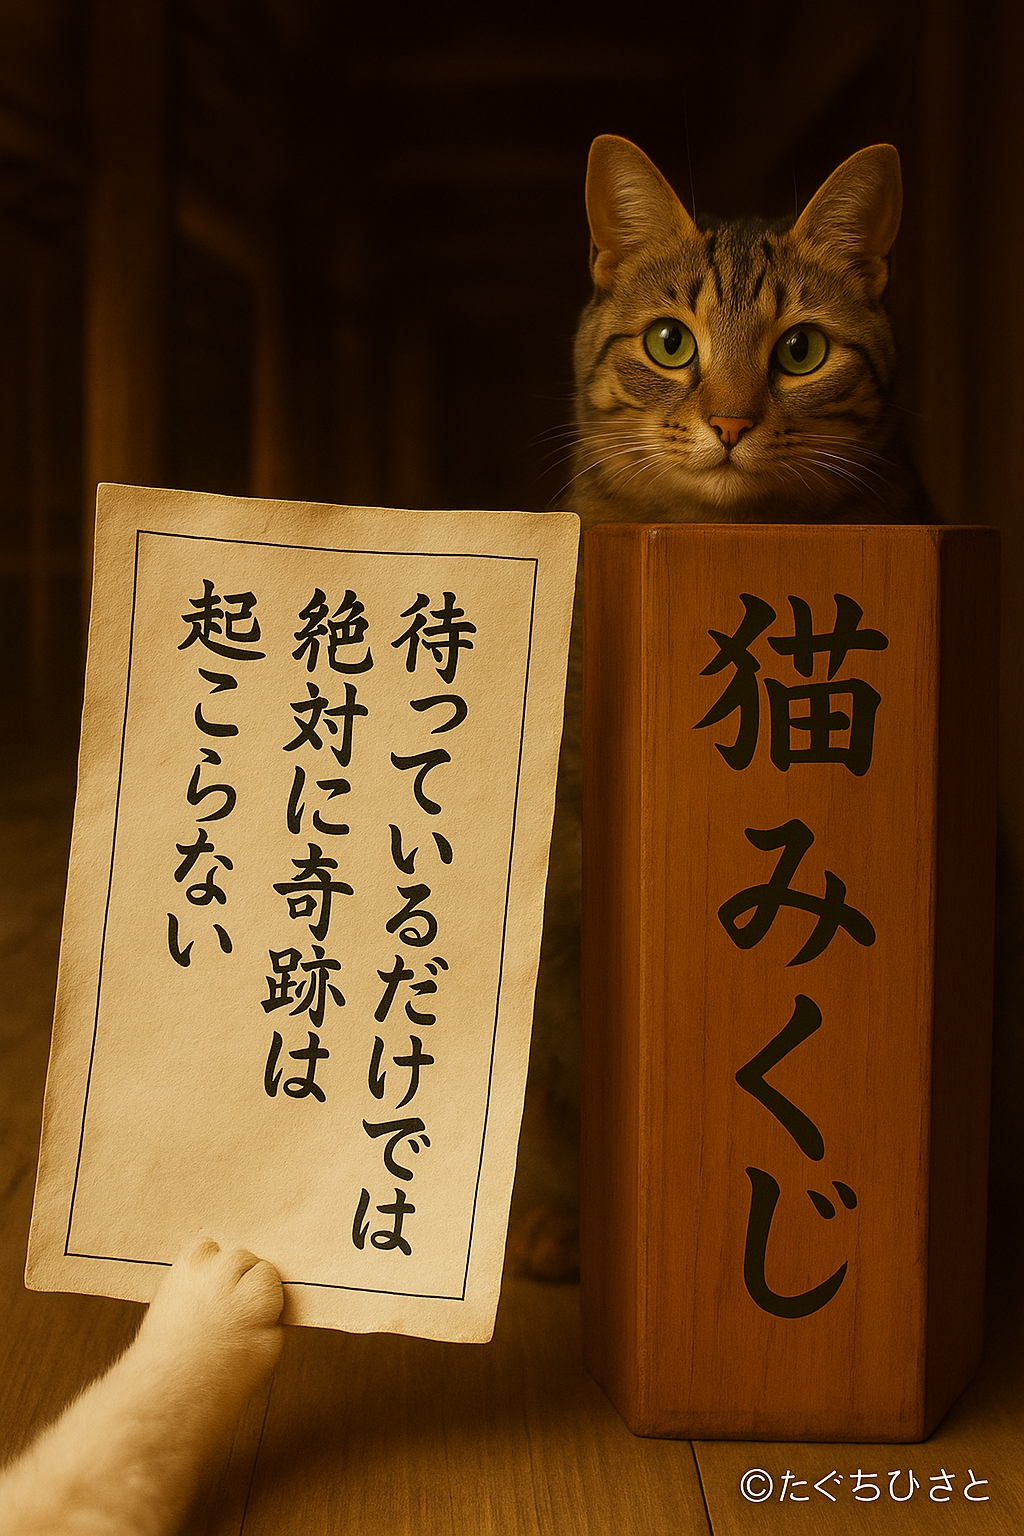 待っているだけでは
絶対に奇跡は
起こらない
猫みくじ
©たぐちひさと